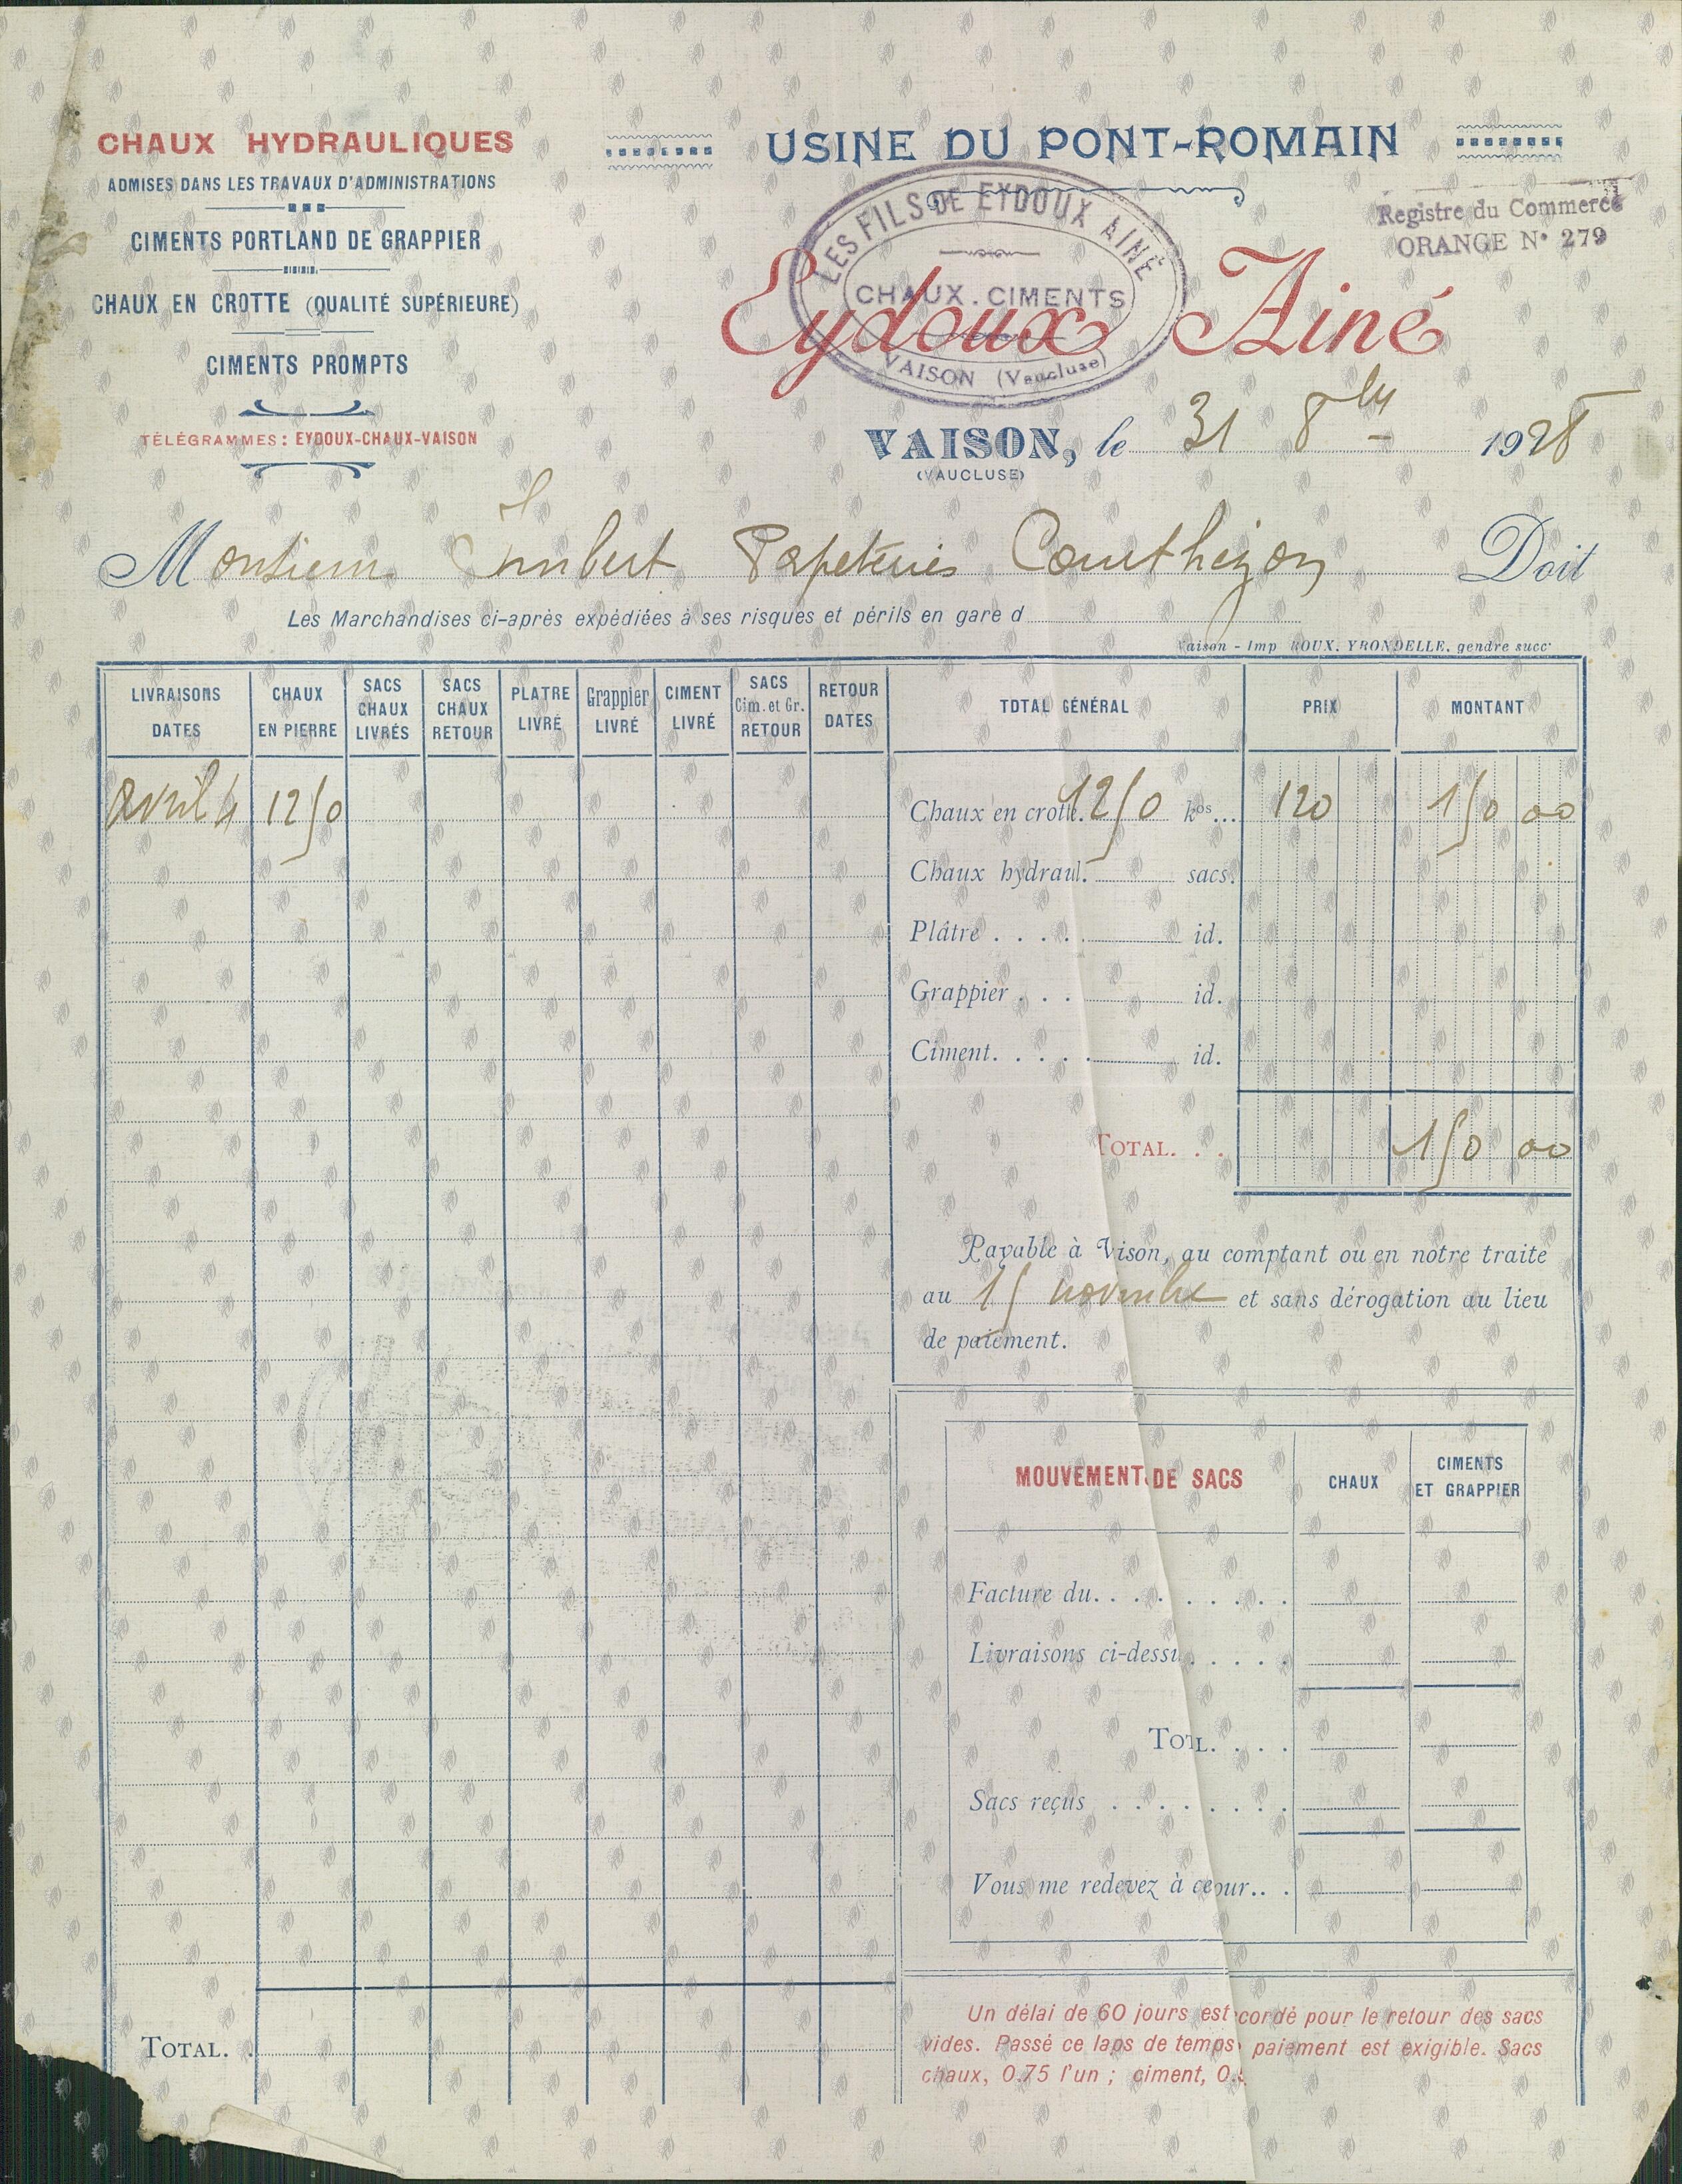 CHAUX HYDRAULIQUES
ADMISES DANS LES TRAVAUX D'ADMINISTRATIONS
CIMENTS PORTLAND DE GRAPPIER
CHAUX EN CROTTE (QUALITÉ SUPÉRIEURE)
CIMENTS PROMPTS
TÉLÉGRAMMES: EYDOUX-CHAUX-VAISON
USINE DU PONT-ROMAIN
Registre du Commerce
ORANGE N° 279
LES FILS DE EYDOUX AINÉ
CHAUX. CIMENTS
VAISON (Vaucluse)
Eydoux Ainé
VAISON, le 31 8bre 1928
(VAUCLUSE)
Monsieur Imbert Papeteries Courthézon Doit
Les Marchandises ci-après expédiées à ses risques et périls en gare d
Vaison - Imp ROUX, YRONDELLE, gendre succr
LIVRAISONS DATES
CHAUX EN PIERRE
SACS CHAUX LIVRÉS
SACS CHAUX RETOUR
PLATRE LIVRÉ
Grappier LIVRÉ
CIMENT LIVRÉ
SACS Cim. et Gr. RETOUR
RETOUR DATES
TOTAL GÉNÉRAL
PRIX
MONTANT
Avril 4 1250
Chaux en crotte. 1250 kos... 120 150 00
Chaux hydraul. sacs.
Plâtre . . . . . id.
Grappier . . . id.
Ciment. . . . . id.
TOTAL. . . 150 00
Payable à Vison, au comptant ou en notre traite
au 15 novembre et sans dérogation au lieu
de paiement.
MOUVEMENT DE SACS
CHAUX
CIMENTS ET GRAPPIER
Facture du. . . . . . . . .
Livraisons ci-dessu . . . . .
TOTL. . . .
Sacs reçus . . . . . . . .
Vous me redevez à ceour.. .
TOTAL.
Un délai de 60 jours est cordé pour le retour des sacs
vides. Passé ce laps de temps paiement est exigible. Sacs
chaux, 0.75 l'un ; ciment, 0.